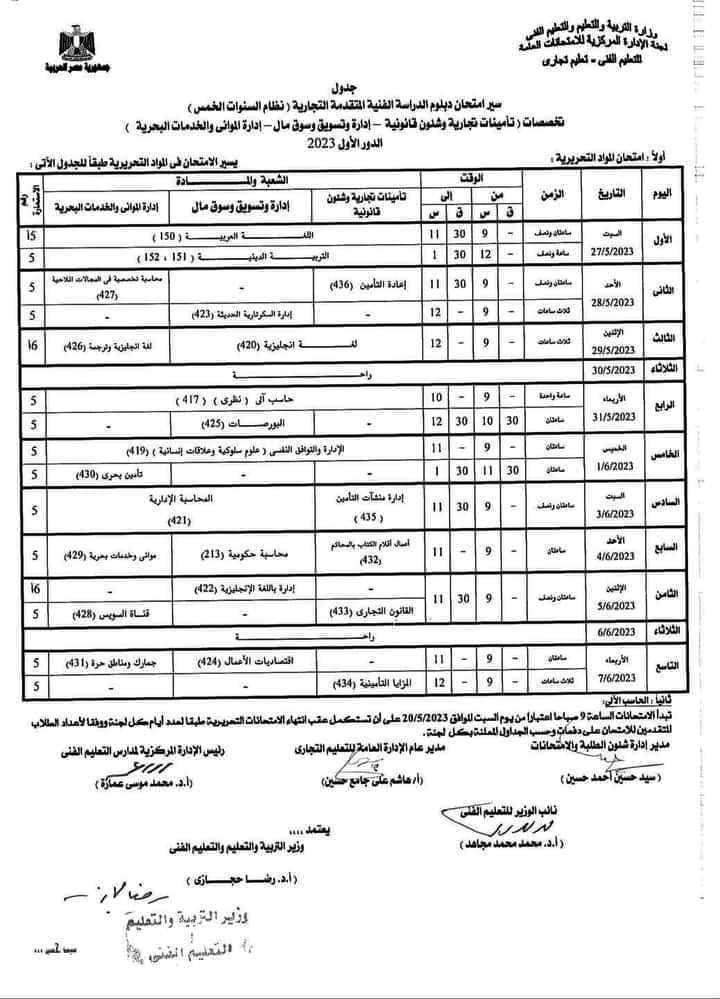 وزارة التربية والتعليم والتعليم الفنى
لجنة الإدارة المركزية للامتحانات العامة
للتعليم الفنى - تعليم تجارى
جمهورية مصر العربية
جدول
سير امتحان دبلوم الدراسة الفنية المتقدمة التجارية ( نظام السنوات الخمس )
تخصصات ( تأمينات تجارية وشئون قانونية – إدارة وتسويق وسوق مال – إدارة الموانى والخدمات البحرية )
الدور الأول 2023
أولاً : امتحان المواد التحريرية : يسير الامتحان فى المواد التحريرية طبقاً للجدول الأتى :
اليوم التاريخ الزمن الوقت الشعبة والمــــــــادة رقم الاستمارة
من إلى تأمينات تجارية وشئون قانونية إدارة وتسويق وسوق مال إدارة الموانى والخدمات البحرية
ق س ق س
الأول السبت 27/5/2023 ساعتان ونصف - 9 30 11 اللغـــــة العربيـــة ( 150 ) 15
ساعة ونصف - 12 30 1 التربيـــة الدينيـــة ( 151 ، 152 ) 5
الثانى الأحد 28/5/2023 ساعتان ونصف - 9 30 11 إعادة التأمين (436) - محاسبة تخصصية فى المجالات الملاحية (427) 5
ثلاث ساعات - 9 - 12 - إدارة السكرتارية الحديثة (423) - 5
الثالث الإثنين 29/5/2023 ثلاث ساعات - 9 - 12 لغـــــة انجليزية (420) لغة انجليزية وترجمة (426) 16
الثلاثاء 30/5/2023 راحـــــــــة
الرابع الأربعاء 31/5/2023 ساعة واحدة - 9 - 10 حاسب آلى ( نظرى ) ( 417 ) 5
ساعتان 30 10 30 12 - البورصـــات (425) - 5
الخامس الخميس 1/6/2023 ساعتان - 9 - 11 الإدارة والتوافق النفسى ( علوم سلوكية وعلاقات إنسانية ) (419) 5
ساعتان 30 11 30 1 - - تأمين بحرى (430) 5
السادس السبت 3/6/2023 ساعتان ونصف - 9 30 11 إدارة منشآت التأمين ( 435 ) المحاسبة الإدارية (421) 5
السابع الأحد 4/6/2023 ساعتان - 9 - 11 أعمال أقلام الكتاب بالمحاكم (432) محاسبة حكومية (213) موانى وخدمات بحرية (429) 5
الثامن الإثنين 5/6/2023 ساعتان ونصف - 9 30 11 - إدارة باللغة الإنجليزية (422) - 16
القانون التجارى (433) - قناة السويس (428) 5
الثلاثاء 6/6/2023 راحـــــــــة
التاسع الأربعاء 7/6/2023 ساعتان - 9 - 11 - اقتصاديات الأعمال (424) جمارك ومناطق حرة (431) 5
ثلاث ساعات - 9 - 12 المزايا التأمينية (434) - - 5
ثانياً : الحاسب الآلى:
تبدأ الامتحانات الساعة 9 صباحا اعتباراً من يوم السبت الموافق 20/5/2023 على أن تستكمل عقب انتهاء الامتحانات التحريرية طبقا لعدد أيام كل لجنة ووفقا لأعداد الطلاب
المتقدمين للامتحان على دفعات وحسب الجداول المعلنة بكل لجنة .
مدير إدارة شئون الطلبة والامتحانات مدير عام الإدارة العامة للتعليم التجارى رئيس الإدارة المركزية لمدارس التعليم الفنى
( سيد حسين أحمد حسين ) (أ/ هاشم على جامع حسين) (أ.د. محمد موسى عمارة )
نائب الوزير للتعليم الفنى
( أ.د. محمد محمد مجاهد )
يعتمد ,,,,
وزير التربية والتعليم والتعليم الفنى
(أ.د. رضـا حجــازى )
وزير التربية والتعليم
والتعليم الفنى